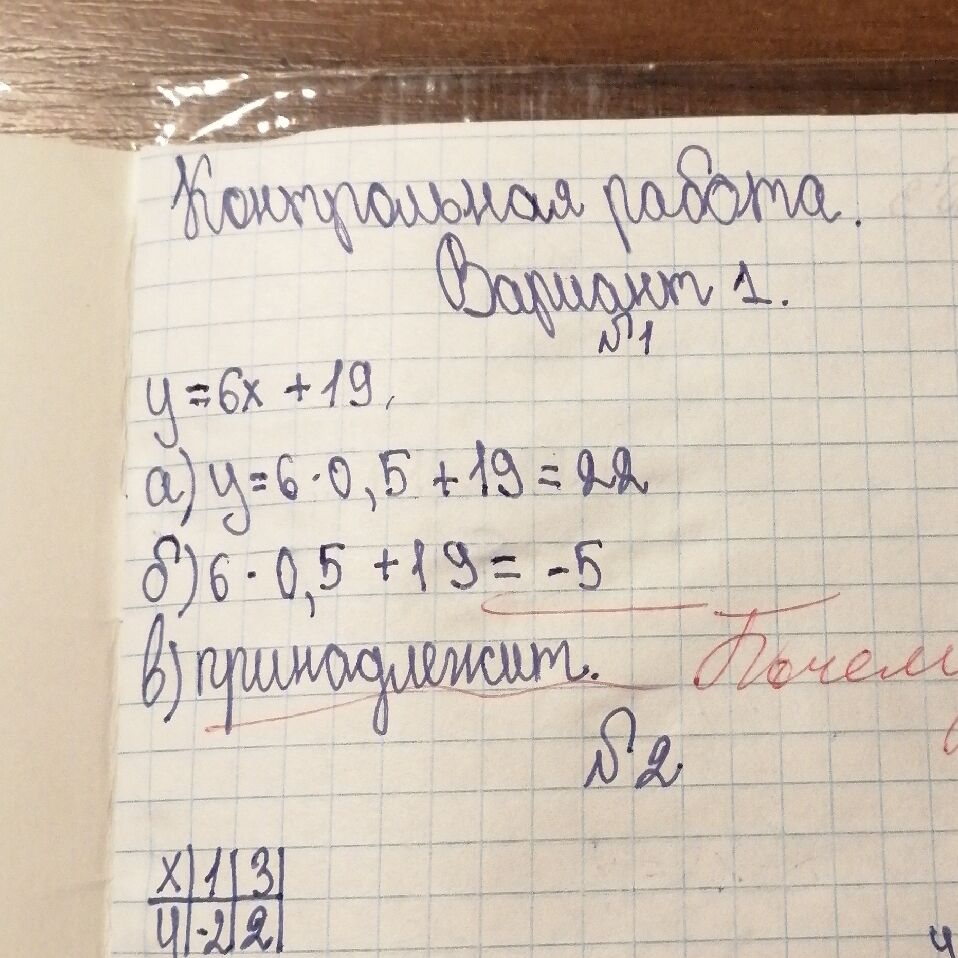 Контрольная работа.
Вариант 1.
№1
y=6x+19,
а) y=6·0,5+19=22
б) 6·0,5+19=-5
в) принадлежит. Почем
№2
x|1|3|
y|-2|2|